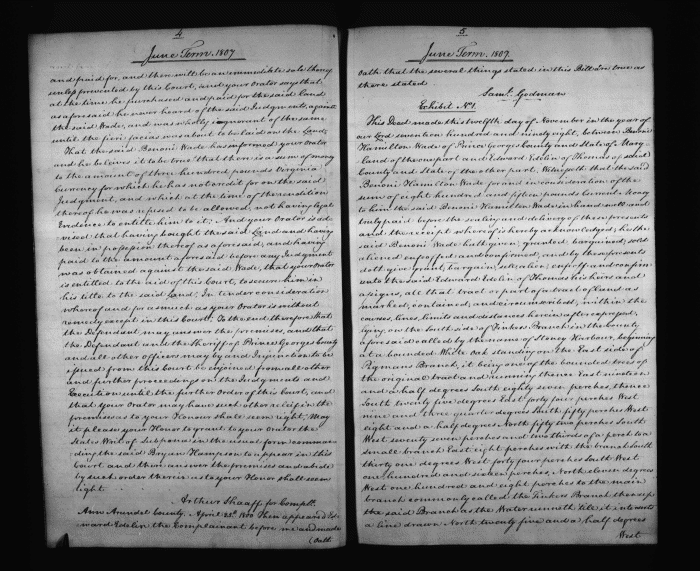 4
June Term. 1807
and paid for, and there will be an immediate sale thereof
unless prevented by this Court, and your Orator says that
at the time he purchased and paid for the said Land
as aforesaid he never heard of the said Judgments, against
the said Wade, and was wholly ignorant of the same
until the fieri facias was about to be laid on the Land,
That the said Benoni Wade has informed your Orator
and he believes it to be true that there is a sum of money
to the amount of three hundred pounds Virginia
Currency for which he has not credit for on the said
Judgment, and which at the time of the rendition
thereof he was refused to be allowed, not having legal
Evidence to entitle him to it. And your Orator is ad
vised that having bought the said Land and having
been in possession thereof as aforesaid, and having
paid to the amount aforesaid before any Judgment
was obtained against the said Wade, that your Orator
is entitled to the aid of this Court, to secure him in
his title to the said Land. In tender consideration
whereof and for as much as your Orator is without
remedy except in this Court. To the end therefore that
the Defendant may answer the premises, and that
the Defendant and the Sheriff of Prince Georges County
and all other officers may by and Injunction to be
issued from this Court be enjoined from all other
and further proceedings on the Judgments and
Executions until the further Order of this Court, and
that your Orator may have such other relief in the
premises as to your Honor shall seem right, May
it please your Honor to grant to your Orator the
States Writ of Subpona in the usual form comman
ding the said Bryan Hampson to appear in this
court and then answer the premises and abide
by such order therein as to your Honor shall seem
right
Arthur Shaaff for Complt.
Ann Arundel County, April 23d. 1800 Then appeared Ed-
ward Edelin the Complainant before me and made
(Oath
5
June Term. 1807.
Oath that the several things stated in this Bill are true as
there stated
Saml. Godman
Exhibit No. 1.
This Deed made this twelfth day of November in the year of
our Lord seventeen hundred and ninety eight, between Benoni
Hamilton Wade of Prince Georges County and State of Mary-
land of the one part and Edward Edelin of Thomas of said
County and State of the other part. Witnesseth that the said
Benoni Hamilton Wade for and in consideration of the
sum of eight hundred and fifteen pounds current Money
to him the said Benoni Hamilton Wade in hand well and
truly paid before the sealing and delivery of these presents
and the receipt whereof is hereby acknowledged, he the
said Benoni Wade hath given, granted bargained, sold
aliened enfeoffed and confirmed, and by these presents
doth give, grant, bargain, sell, alien, enfeoff and confirm
unto the said Edward Edelin of Thomas his heirs and
assigns, all that tract or part of a tract of land as
marked, contained, and circumscribed, within the
courses, lines, limits and distances herein after exprest,
lying on the South side of Tinkers Branch in the County
aforesaid called by the name of Stoney Harbour, beginning
at a bounded White Oak standing on the East side of
Pigmans Branch, it being one of the bounded trees of
the original tract and running thence East nineteen
and a half degrees South eighty seven perches, thence
South twenty five degrees East forty four perches West
nine and three quarter degrees South fifty perches West
eight and a half degrees North fifty two perches South
West seventy seven perches and two thirds of a perch to a
small branch East eight perches with the branch South
thirty one degrees West forty perches South West
one hundred and sixteen perches, North eleven degrees
West one hundred and eight perches to the main
branch commonly called the Tinkers Branch thence up
the said Branch as the Water runneth till it intersects
a line drawn North twenty five and a half degrees
West